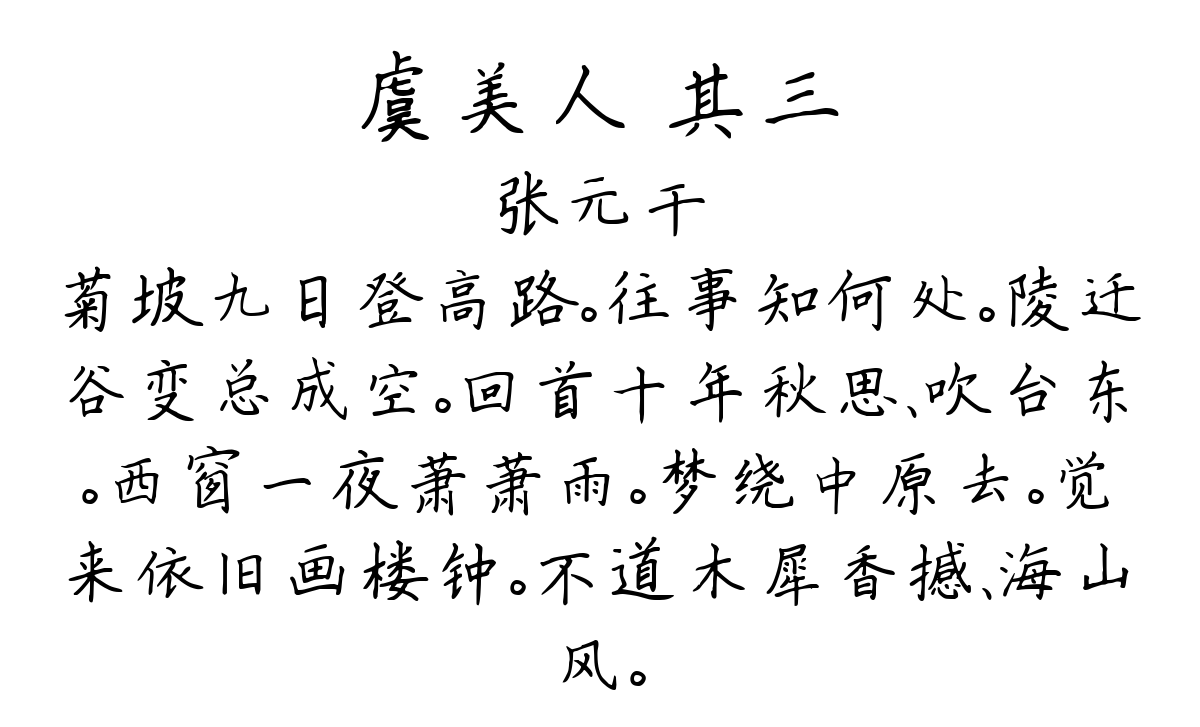 虞美人 其三
张元干
菊坡九日登高路。往事知何处。陵迁
谷变总成空。回首十年秋思、吹台东
。西窗一夜萧萧雨。梦绕中原去。觉
来依旧画楼钟。不道木犀香撼、海山
风。